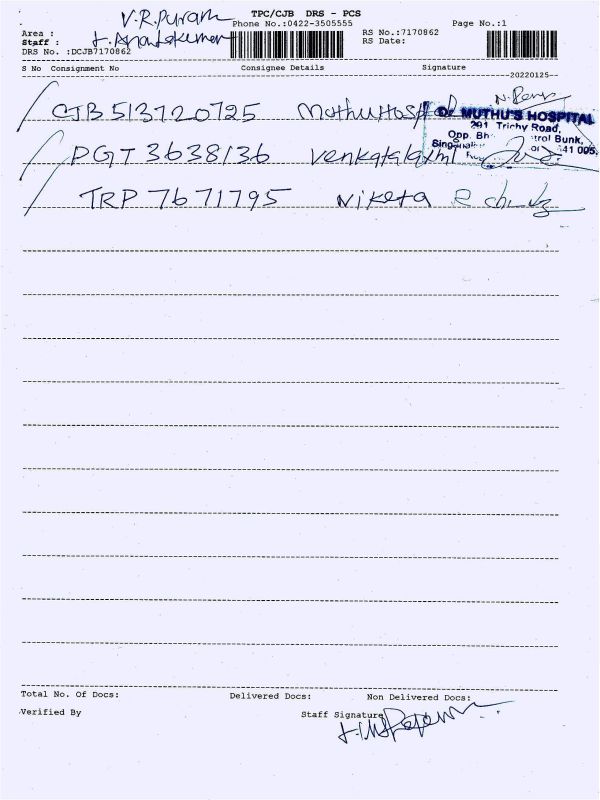 TPC/CJB DRS - PCS
V.R.Puram
Phone No.:0422-3505555
Page No.:1
Area :
RS No.:7170862
Staff :
RS Date:
DRS No. :DCJB7170862
S No Consignment No Consignee Details Signature
20220125
CJB 513720725 Muthu Hospital
Dr MUTHU'S HOSPITAL
291 Trichy Road,
Opp. Bh trol Bunk,
Singanal
41 005
PGT 3638136 Venkatalaxmi
TRP 7671795 Niketa
Total No. Of Docs: Delivered Docs: Non Delivered Docs:
Verified By Staff Signature